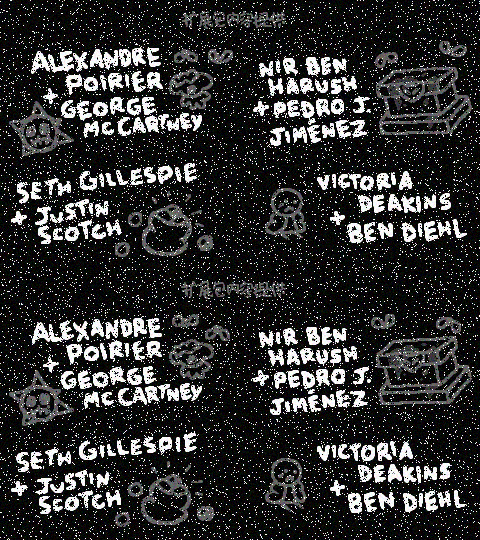 ALEXANDRE
POIRIER
+ GEORGE
MCCARTNEY
NIR BEN
HARUSH
+ PEDRO J.
JIMÉNEZ
SETH GILLESPIE
+ JUSTIN
SCOTCH
VICTORIA
DEAKINS
+ BEN DIEHL
ALEXANDRE
POIRIER
+ GEORGE
MCCARTNEY
NIR BEN
HARUSH
+ PEDRO J.
JIMÉNEZ
SETH GILLESPIE
+ JUSTIN
SCOTCH
VICTORIA
DEAKINS
+ BEN DIEHL